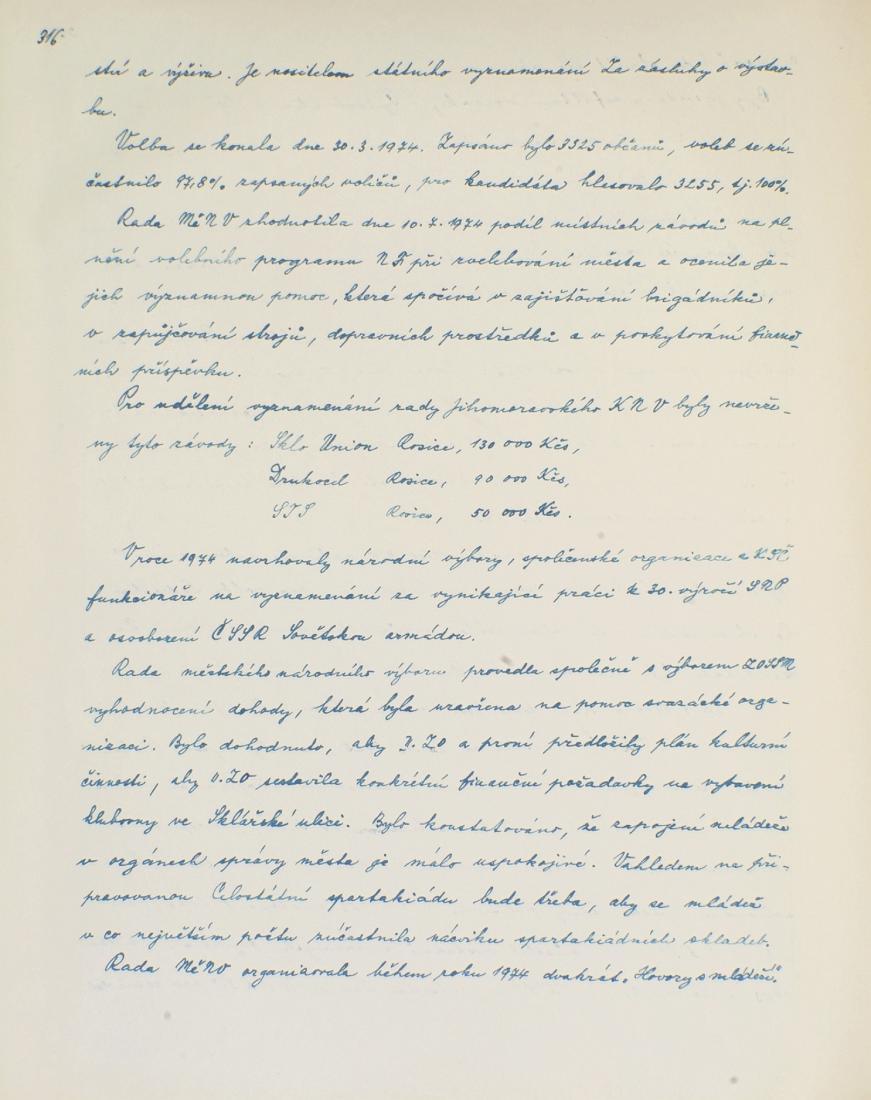 316
ství a výživa. Je nositelem státního vyznamenání Za zásluhy o výstav-
bu.
Volba se konala dne 30.3.1974. Zapsáno bylo 3325 občanů, voleb se zú-
častnilo 97,8% zapsaných voličů, pro kandidáta hlasovalo 3255, tj. 100%.
Rada MěNV zhodnotila dne 10.7.1974 podíl místních závodů na pl-
nění volebního programu NF při zvelebování města a ocenila je-
jich významnou pomoc, která spočívá v zajišťování brigádníků,
v zapůjčování strojů, dopravních prostředků a v poskytování finanč-
ních příspěvku.
Pro udělení vyznamenání rady Jihomoravského KNV byly navrže-
ny tyto závody: Sklo Union Rosice, 130 000 Kčs,
Druhocel Rosice, 90 000 Kčs,
STS Rosice, 50 000 Kčs.
V roce 1974 navrhovaly národní výbory, společenské organizace a KSČ
funkcionáře na vyznamenání za vynikající práci k 30. výročí SNP
a osvobození ČSSR Sovětskou armádou.
Rada městského národního výboru provedla společně s výborem ZOSSM
vyhodnocení dohody, která byla uzavřena na pomoc svazácké orga-
nizaci. Bylo dohodnuto, aby II. ZO a první předložily plán kulturní
činnosti, aby II. ZO sestavila konkrétní finanční požadavky na vybavení
klubovny ve Sklářské ulici. Bylo konstatováno, že zapojení mládeže
v orgánech správy města je málo uspokojivé. Vzhledem na při-
pravovanou Celostátní spartakiádu bude třeba, aby se mládež
v co největším počtu zúčastnila nácviku spartakiádních skladeb.
Rada MěNV organizovala během roku 1974 dvakrát „Hovory s mládeží."